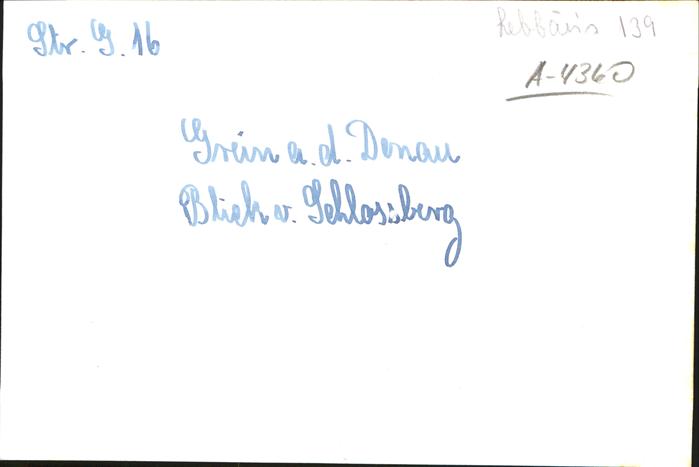 Str. G. 16
139
A-4360
Grein a. d. Donau
Blick v. Schlossberg